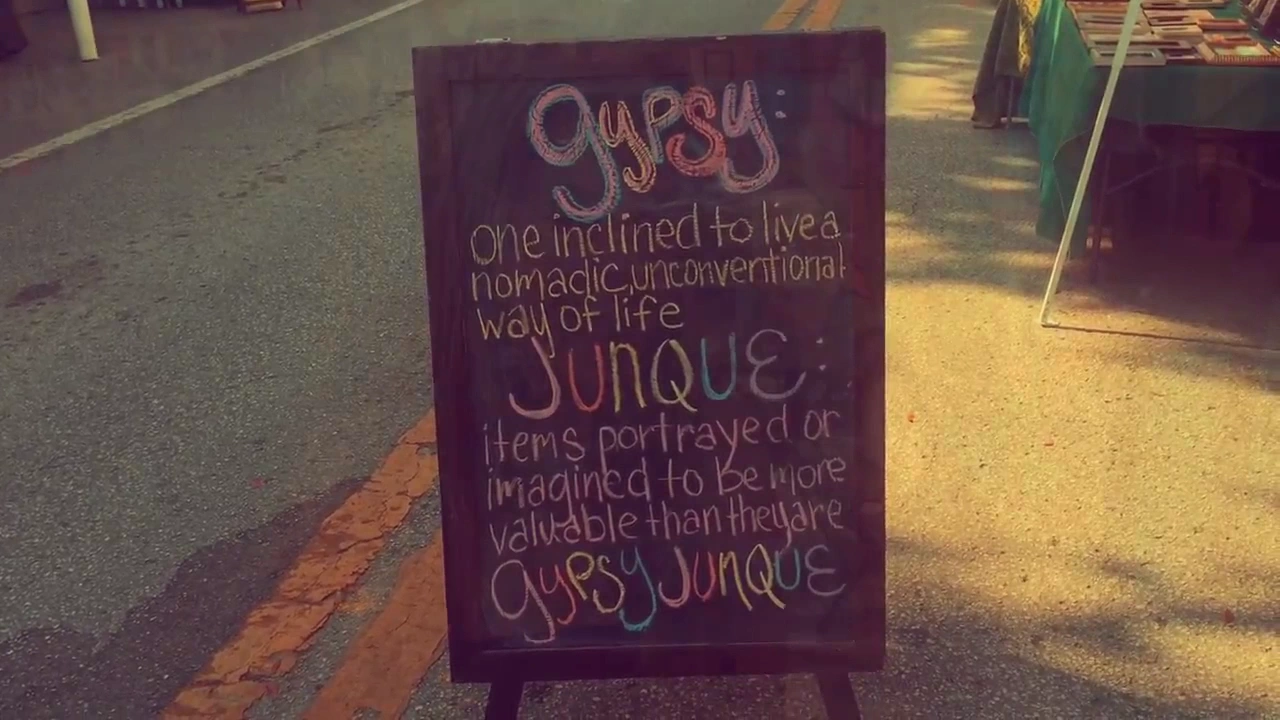 gypsy:
one inclined to live a
nomadic, unconventional
way of life
JUNQUE:
items portrayed or
imagined to be more
valuable than they are
gypsy JUNQUE